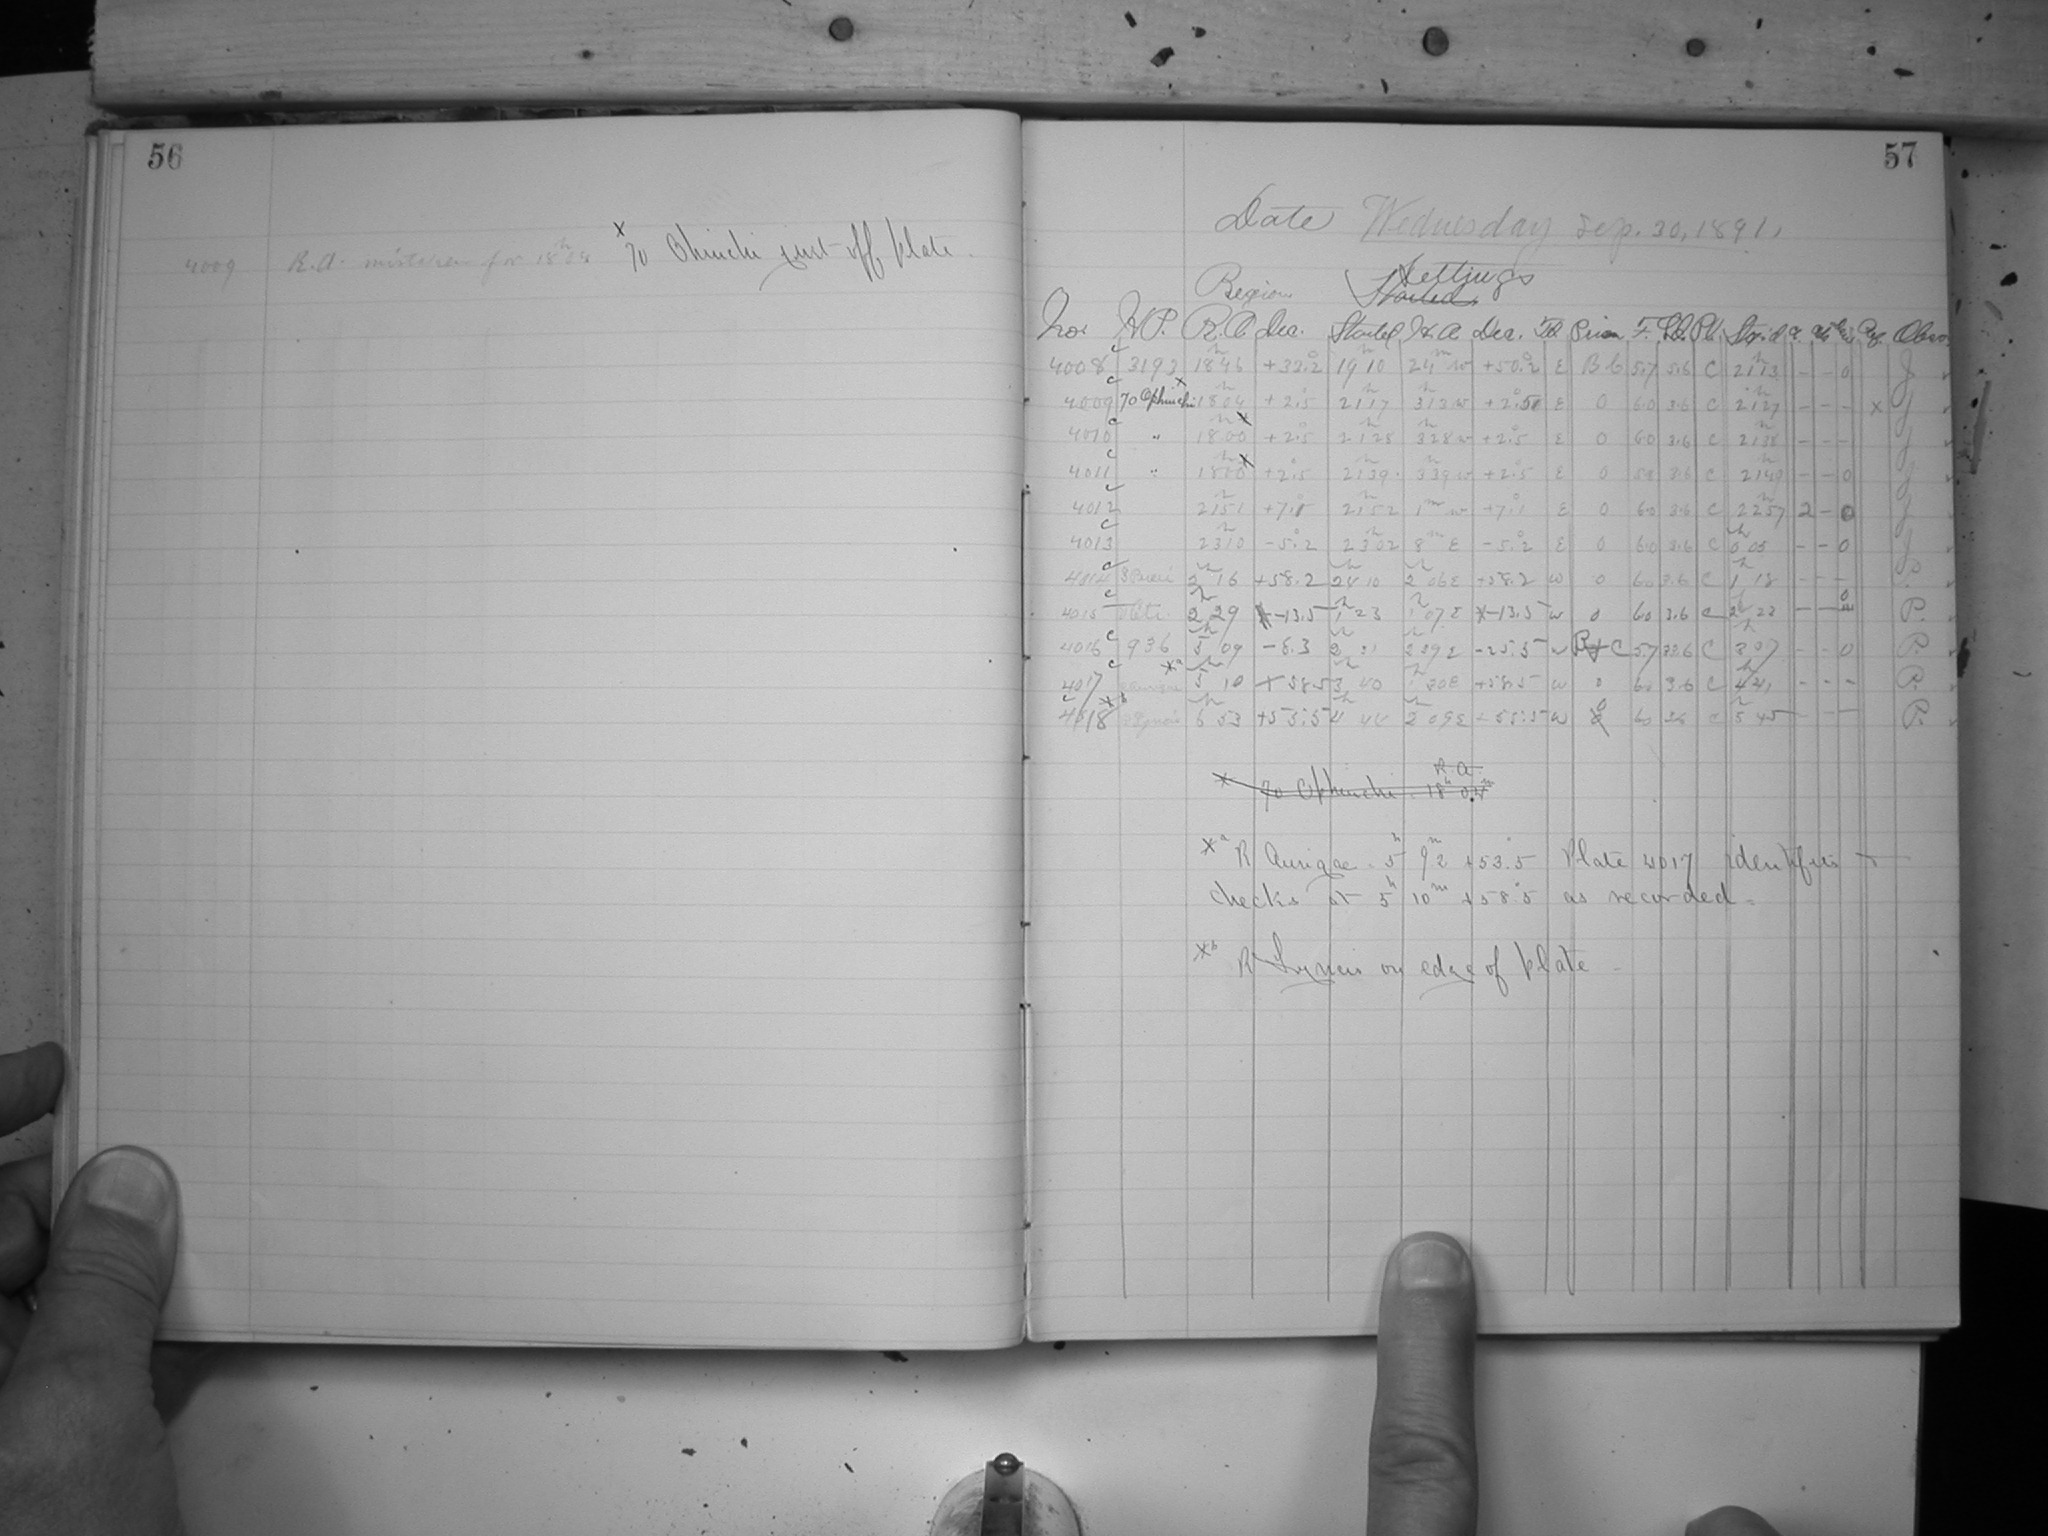 56
4009 R.A. mistaken for 18h04 x 70 Ophiuchi just off plate.
57
Date Wednesday Sep. 30, 1891.
Settings
Region Started
No. H.P. R.A Dec. Started H.A Dec. Td Prism F. Pl. Stop'd Obser
4008 3193 18h46 +33.2 19h10 24m w +50.2 E B C 5.7 5.6 C 21h13 - - 0 J
4009 70 Ophiuchi x 18h04 +2.5 21h17 3h13 w +2.5 E 0 6.0 3.6 C 21h27 - - - x J
4010 " 18h00 x +2.5 21h28 3h28 w +2.5 E 0 6.0 3.6 C 21h38 - - - J
4011 " 18h00 x +2.5 21h39 3h39 w +2.5 E 0 3.6 C 21h49 - - 0 J
4012 21h51 +7.1 21h52 1m w +7.1 E 0 6.0 3.6 C 22h57 2 - 0 J
4013 23h10 -5.2 23h02 8m E -5.2 E 0 6.0 3.6 C 0h05 - - 0 J
4014 S Persei 2h16 +58.2 24h10 2h06 E +58.2 w 0 6.0 3.6 C 1h18 - - - P.
4015 2h29 -13.5 1h23 1h07 E -13.5 w 0 6.0 3.6 C 2h22 - - P.
4016 936 5h09 -8.3 2h31 2h39 E -25.5 w C 5.7 3.6 C 3h07 - - 0 P.
4017 *a 5h10 +58.5 3h40 1h30 E +58.5 w 0 6.0 3.6 C 4h41 - - - P.
4018 *b R Lyncis 6h53 +55.5 4h44 2h09 E +55.5 w 0 6.0 3.6 C 5h45 - - - P.
R.a.
x 70 Ophiuchi. 18h 04m
*a R Aurigae. 5h 9m2 +53.5 Plate 4017 identifies +
checks at 5h 10m +58.5 as recorded.
*b R Lyncis on edge of plate